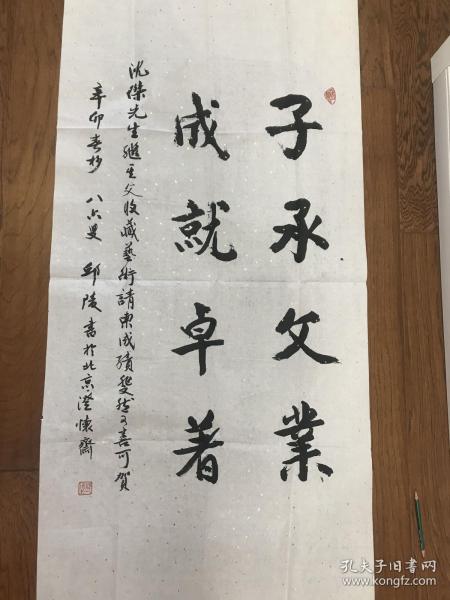 子承父業
成就卓著
沈傑先生繼其父收藏藝術請柬成績斐然可喜可賀
辛卯春杪 八六叟 邱陵書於北京澄懷齋
孔夫子旧书网
www.kongfz.com